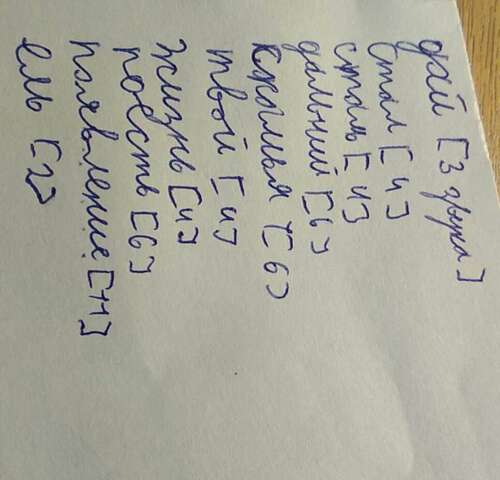 дай [3 звука]
стал [4]
сталь [4]
дальний [6]
крылья [6]
твой [4]
жизнь [4]
поесть [6]
появление [11]
ель [2]